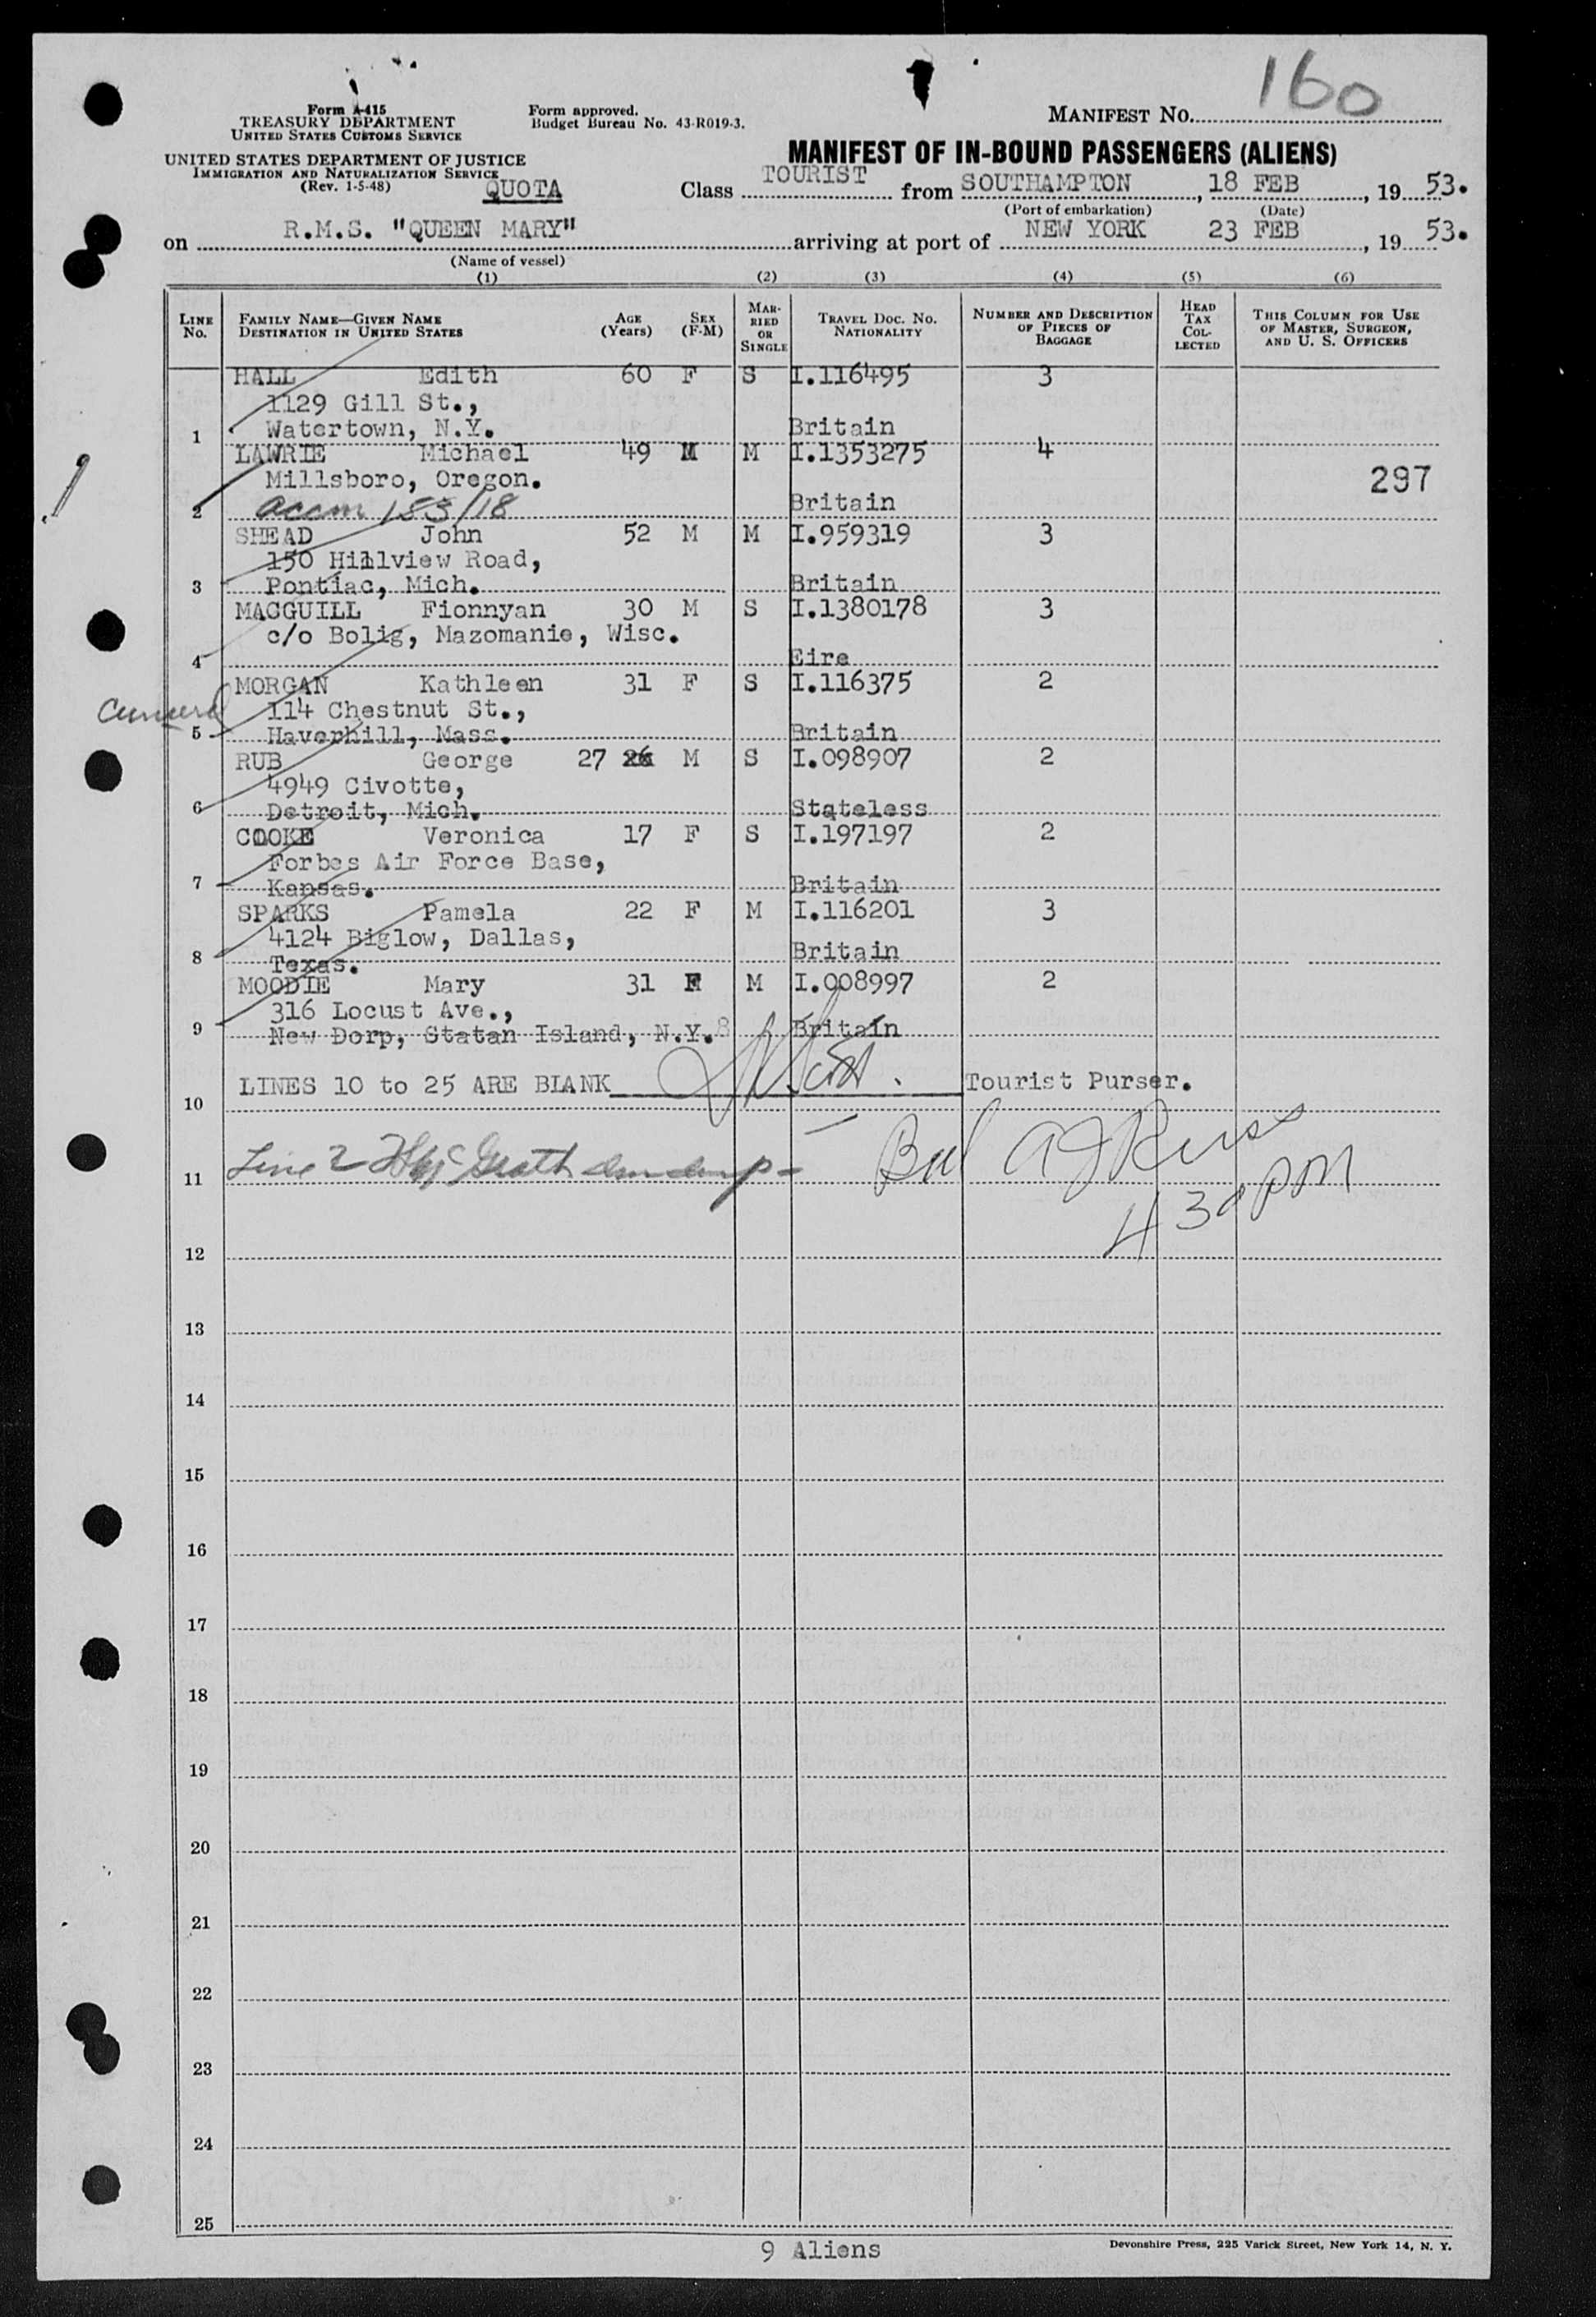 160
Form A-415
TREASURY DEPARTMENT
UNITED STATES CUSTOMS SERVICE
Form approved.
Budget Bureau No. 43-R019-3.
MANIFEST NO.
UNITED STATES DEPARTMENT OF JUSTICE
IMMIGRATION AND NATURALIZATION SERVICE
(Rev. 1-5-48)
QUOTA
MANIFEST OF IN-BOUND PASSENGERS (ALIENS)
Class TOURIST from SOUTHAMPTON, 18 FEB, 19 53.
(Port of embarkation) (Date)
on R.M.S. "QUEEN MARY" arriving at port of NEW YORK 23 FEB, 19 53.
(Name of vessel)
(1) (2) (3) (4) (5) (6)
LINE No. FAMILY NAME—GIVEN NAME DESTINATION IN UNITED STATES AGE (Years) SEX (F-M) MARRIED OR SINGLE TRAVEL DOC. NO. NATIONALITY NUMBER AND DESCRIPTION OF PIECES OF BAGGAGE HEAD TAX COLLECTED THIS COLUMN FOR USE OF MASTER, SURGEON, AND U. S. OFFICERS
HALL Edith 60 F S I.116495 3
1129 Gill St.,
1 Watertown, N.Y. Britain
LAWRIE Michael 49 M M I.1353275 4
Millsboro, Oregon. 297
2 accm 183/18 Britain
SHEAD John 52 M M I.959319 3
150 Hillview Road,
3 Pontiac, Mich. Britain
MACGUILL Fionnyan 30 M S I.1380178 3
c/o Bolig, Mazomanie, Wisc.
4 Eire
MORGAN Kathleen 31 F S I.116375 2
114 Chestnut St.,
5 Haverhill, Mass. Britain
RUB George 27 26 M S I.098907 2
4949 Civotte,
6 Detroit, Mich. Stateless
COOKE Veronica 17 F S I.197197 2
Forbes Air Force Base,
7 Kansas. Britain
SPARKS Pamela 22 F M I.116201 3
4124 Biglow, Dallas,
8 Texas. Britain
MOODIE Mary 31 F M I.008997 2
316 Locust Ave.,
9 New Dorp, Statan Island, N.Y.8 Britain
LINES 10 to 25 ARE BLANK Tourist Purser.
10
11 Line 2
430 PM
12
13
14
15
16
17
18
19
20
21
22
23
24
25
9 Aliens
Devonshire Press, 225 Varick Street, New York 14, N. Y.